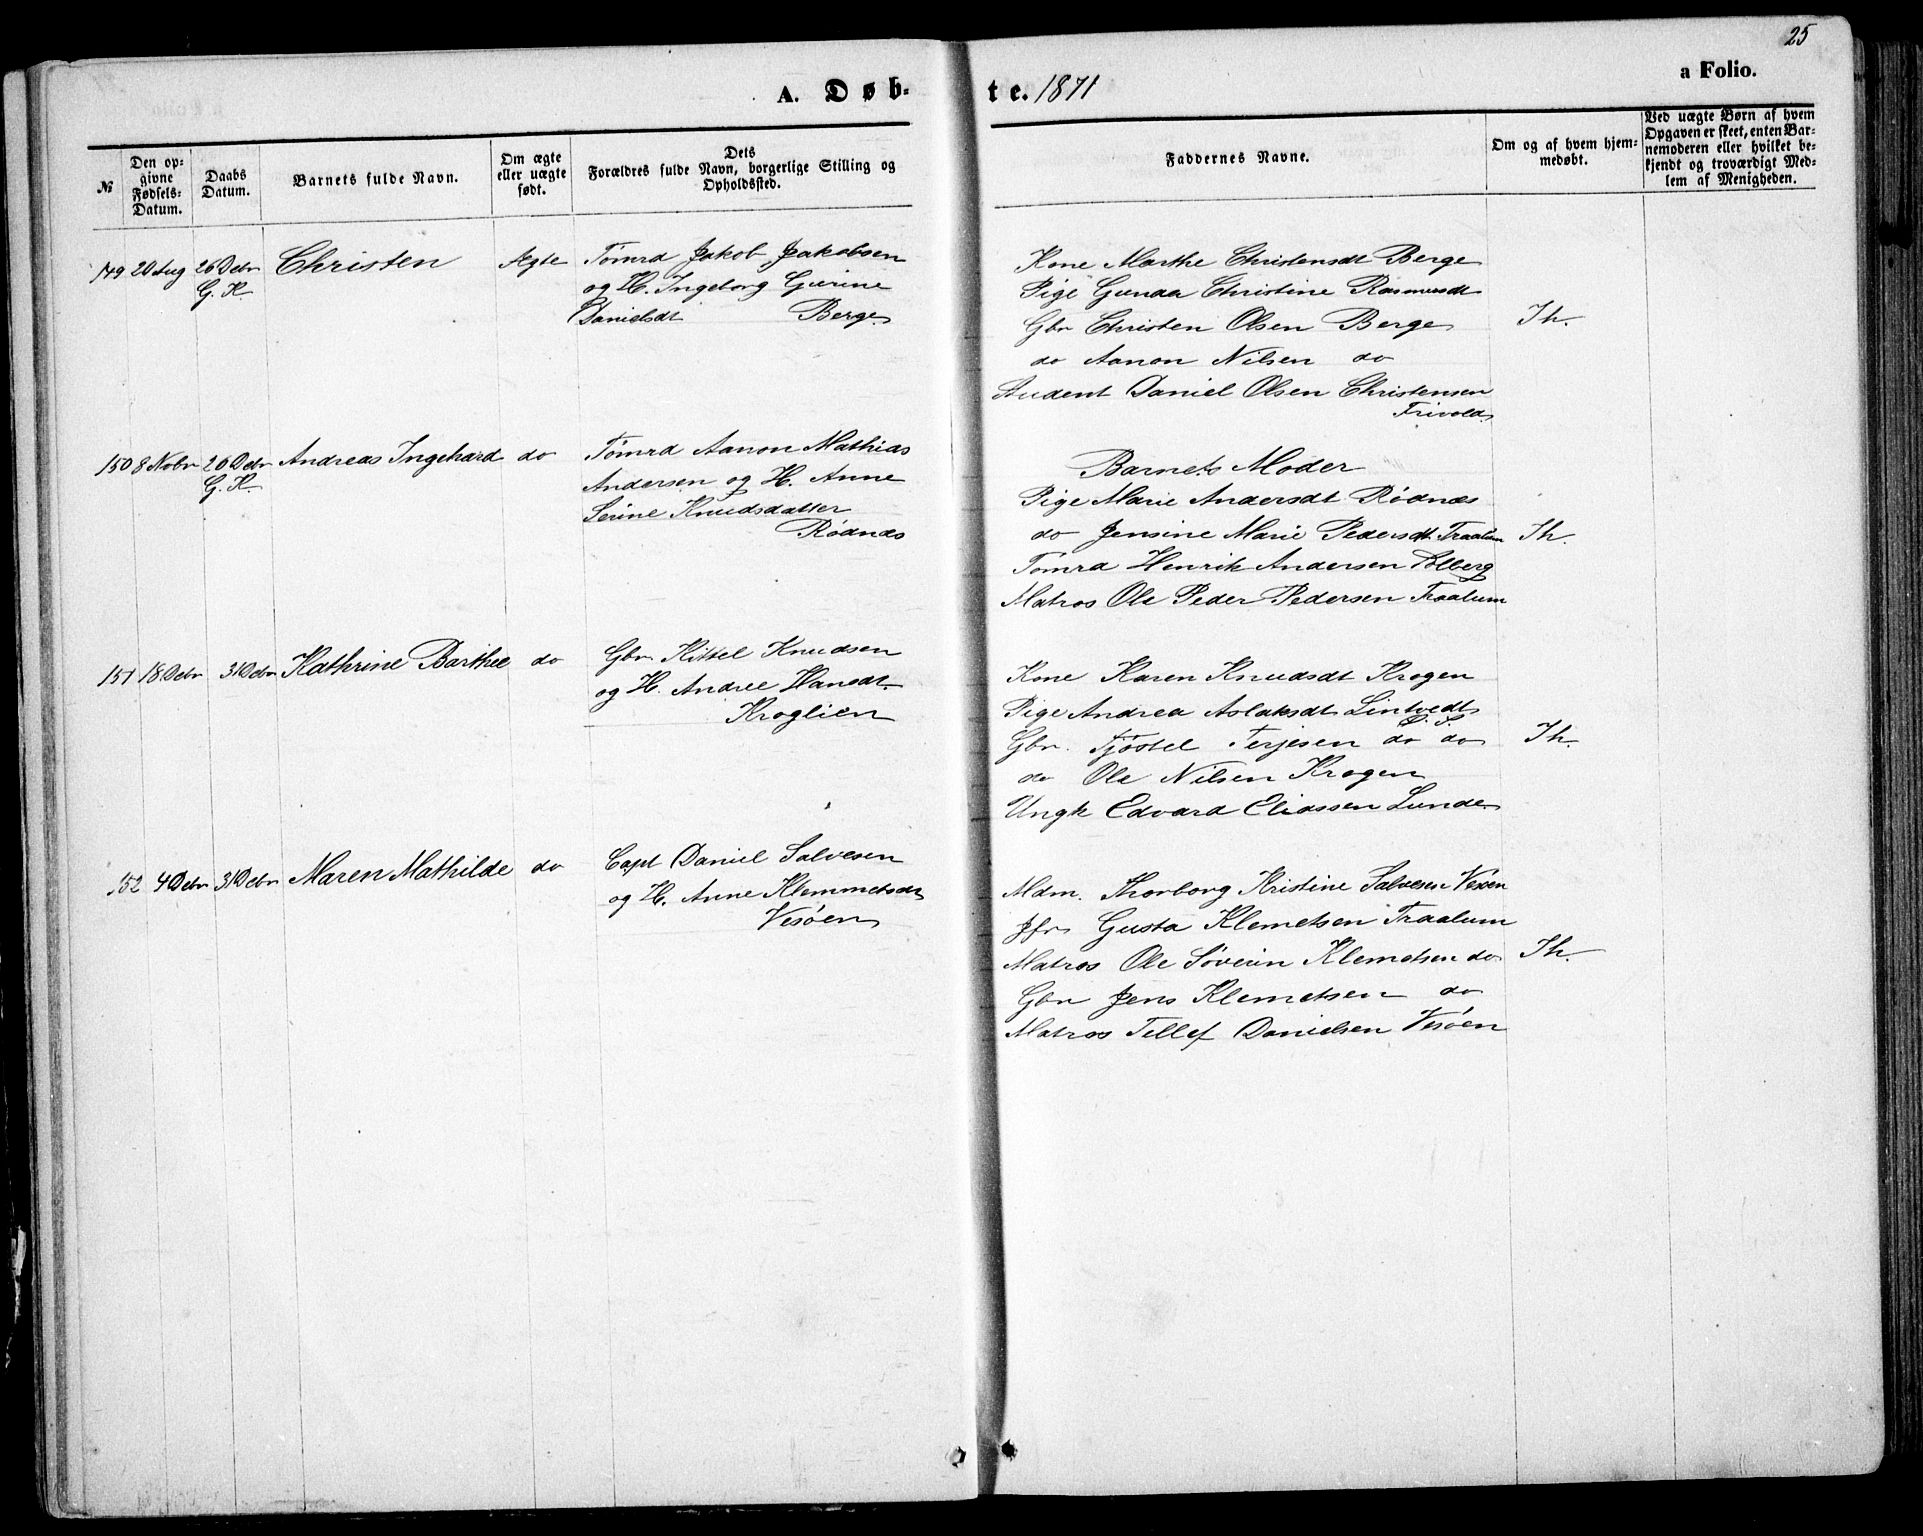 25
a Folio.
A. Døb-
te. 1871
№
Den op-
givne
Fødsels-
Datum.
Daabs
Datum.
Barnets fulde Navn.
Om ægte
eller uægte
født.
Dets
Forældres fulde Navn, borgerlige Stilling og
Opholdssted.
Faddernes Navne.
Om og af hvem hjem-
medøbt.
Ved uægte Børn af hvem
Opgaven er skeet, enten Bar-
nemoderen eller hvilket be-
kjendt og troværdigt Med-
lem af Menigheden.
149 20 Aug 26 Debr Christen Ægte Tømrd Jakob Jakobsen
G. K. og H. Ingeborg Gurine
Danielsdt Berge
Kone Marthe Christensdt Berge
Pige Gunda Christine Rasmusdt
Gbr Christen Olsen Berge Jh.
do Aanon Nilsen do
Student Daniel Olsen Christensen
Trivold
150 8 Nobr 26 Debr Andreas Ingehard do Tømrd Aanon Mathias
G. K. Andersen og H. Anne
Serine Knudsdatter
Rødnæs
Barnets Moder
Pige Marie Andersdt Rødnæs
do Jensine Marie Pedersdt Traalum Jh.
Tømrd Henrik Andersen Dolberg
Matros Ole Peder Pedersen Traalum
151 18 Debr 31 Debr Kathrine Barthee do Gbr Kittel Knudsen
og H. Andree Hansdt
Kroglien
Kone Karen Knudsdt Krogen
Pige Andrea Aslaksdt Lintvedt
Ø. S.
Gbr. Tjøstel Terjesen do do Jh.
do Ole Nilsen Krogen
Ungk Edvard Eliassen Lunde
152 4 Debr 31 Debr Maren Mathilde do Capt Daniel Salvesen
og H. Anne Klemmetsdt
Vesøen
Mdm. Thorborg Kristine Salvesen Vesøen
Jfr Gusta Klemetsen Traalum
Matros Ole Søverin Klemetsen do Jh.
Gbr Jens Klemetsen do
Matros Tellef Danielsen Vesøen